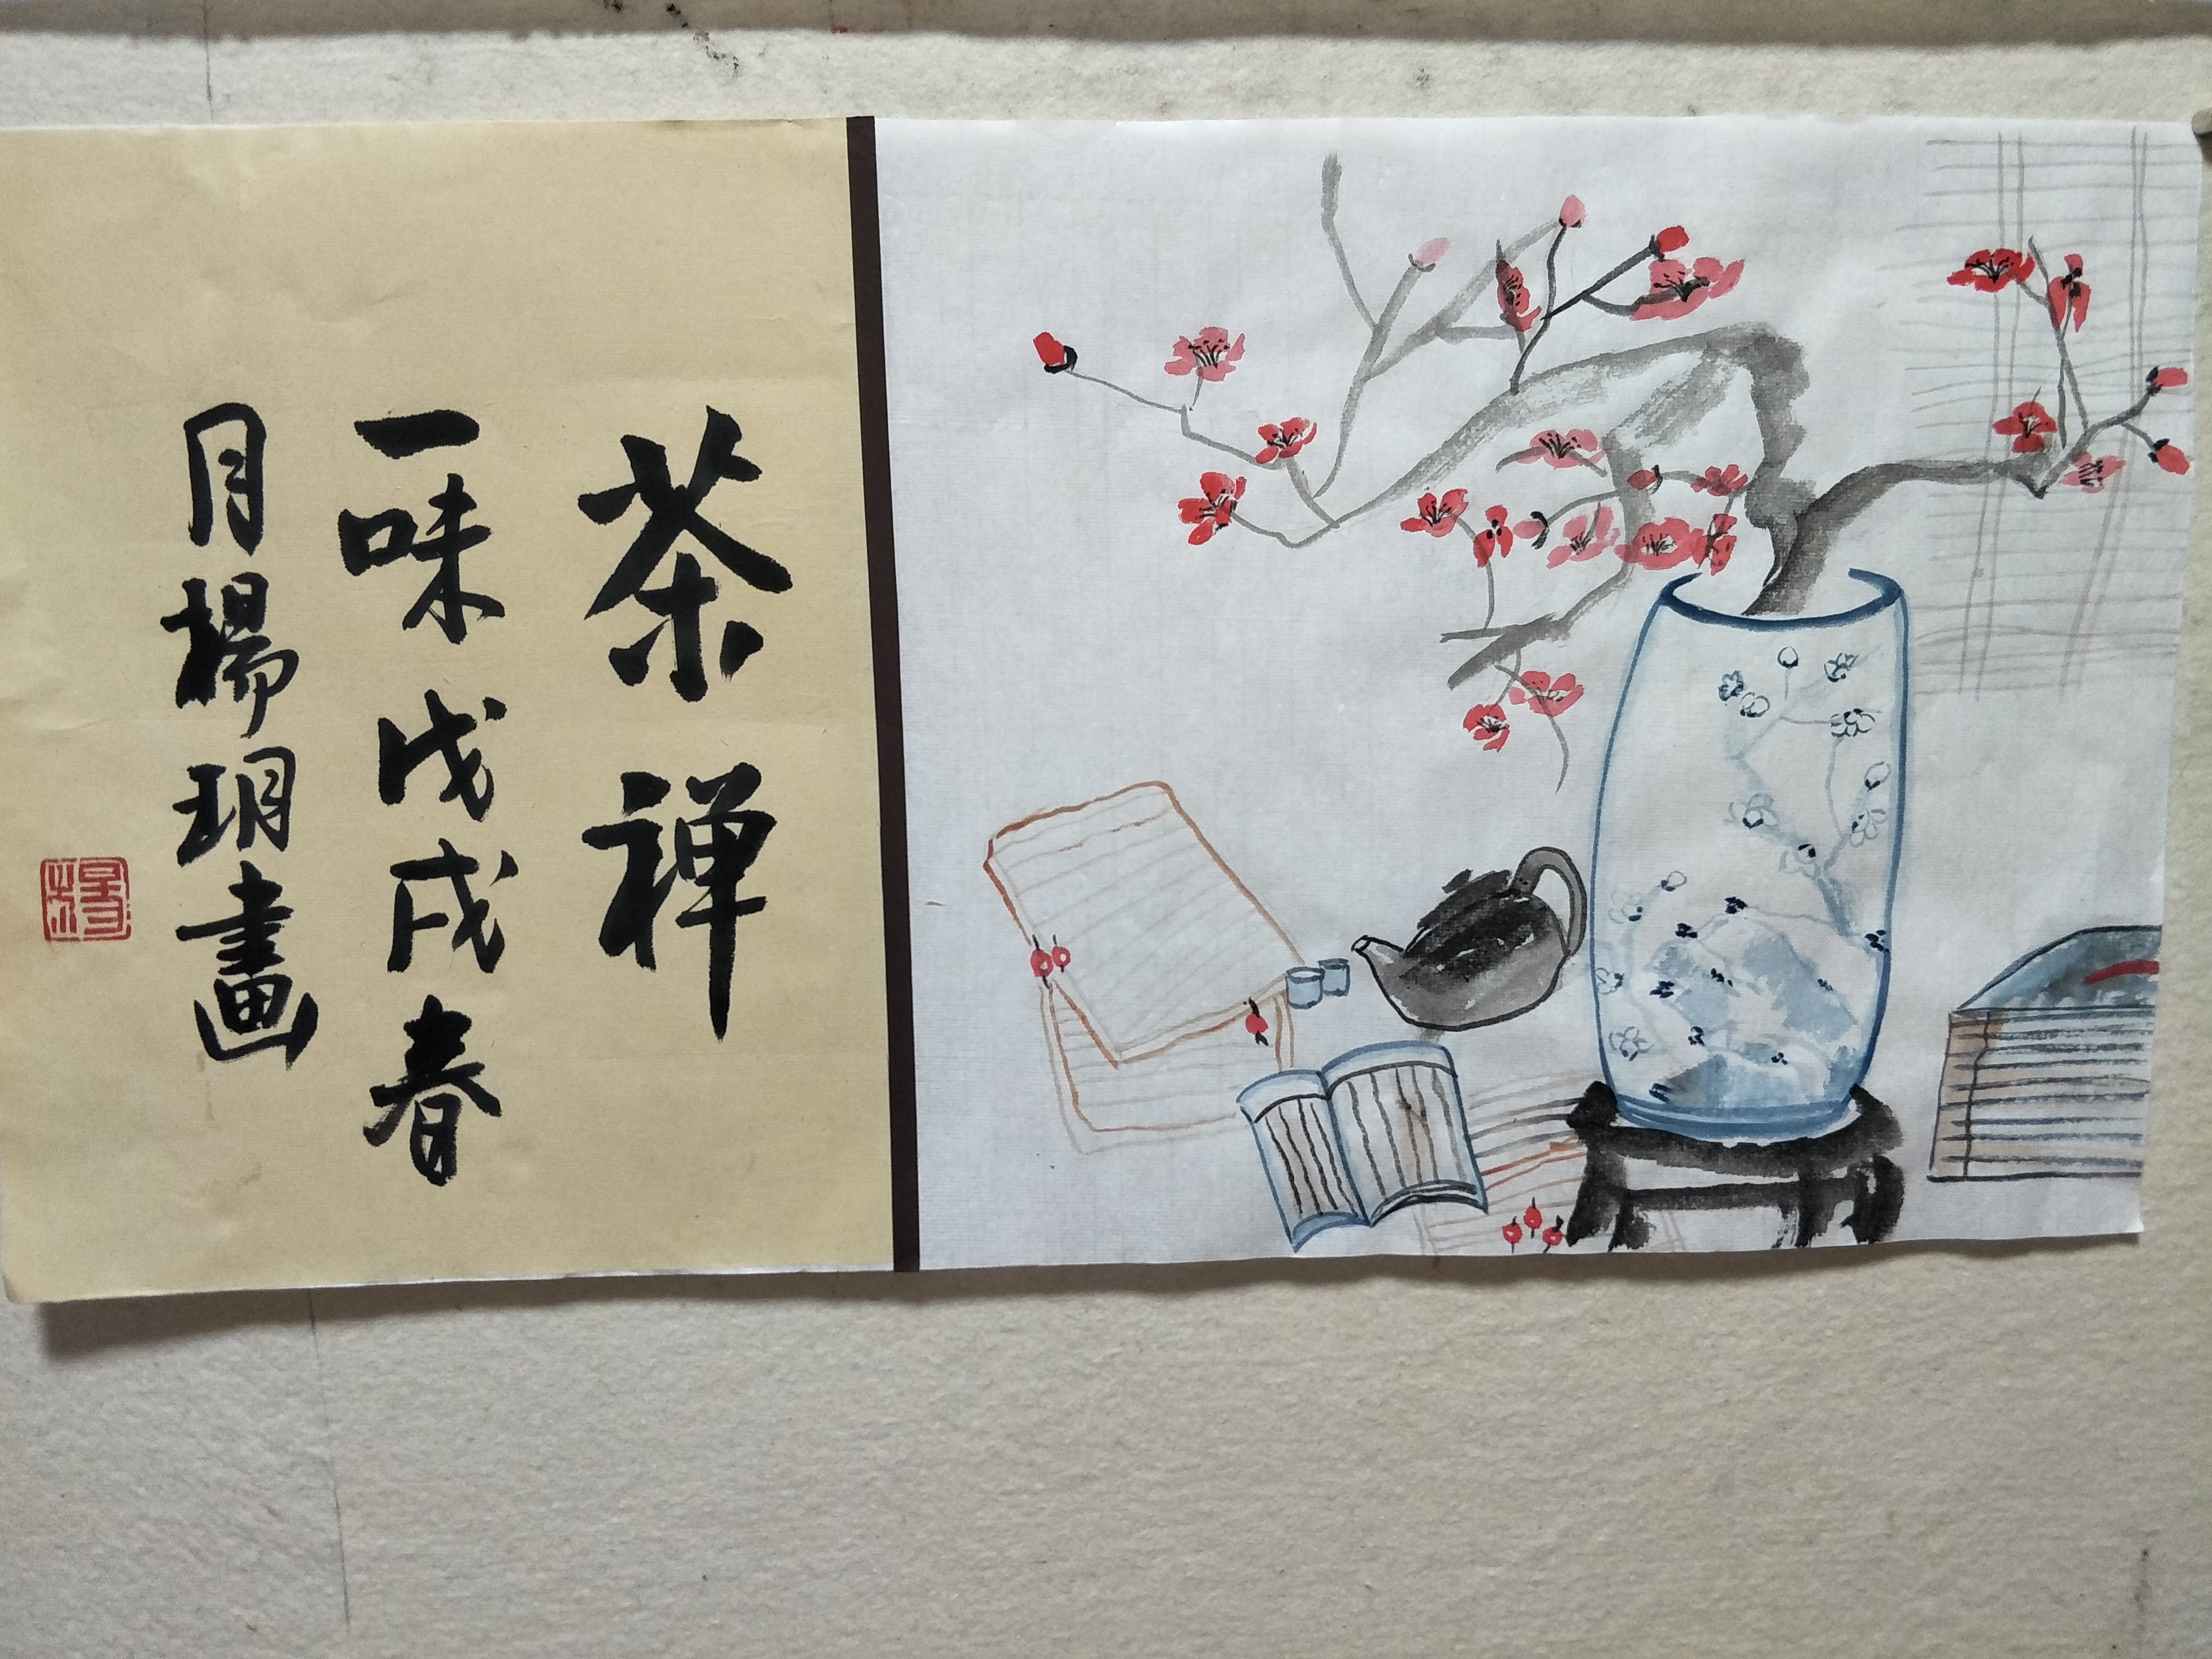 茶禅
一味戊戌春
月楊玥畫